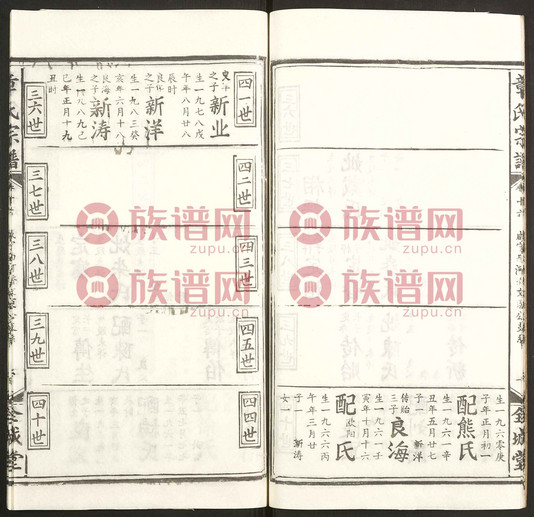 章氏宗譜
金城堂
生一九六零庚
子年正月初一
配熊氏
生一九六一辛
丑年五月廿七
子一 新洋
传胎
三子
良海
生一九六一
寅年十月十六
配
欧阳
氏
生一九六六丙
午年三月廿
子一 新涛
女一
四一世
四二世
四三世
四五世
四四世
之子
新业
生一九七八戊
午年八月廿八
辰时
良伟
之子
新洋
生一九八三癸
亥年六月十八
良海
之子
新涛
生一九八九己
巳年正月十九
丑时
三六世
三七世
三八世
三九世
四十世
章氏宗譜
金城堂
族谱网
zupu.cn
族谱网
zupu.cn
族谱网
zupu.cn
族谱网
zupu.cn
族谱网
zupu.cn
族谱网
zupu.cn